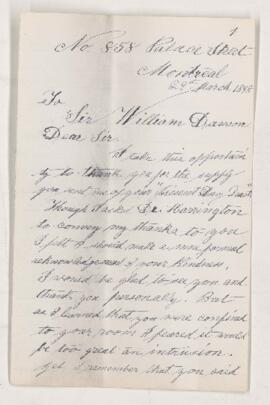 1
No. 858 Palace Street
Montreal
29th March 1898
To
Sir William Dawson
Dear Sir.
I take this opportun
ity to thank you for the supply
you send me of your
Though I asked Dr. Harrington
to convey my thanks to you
I felt I should make a more formal
acknowledgement of your kindness.
I would be glad to see you and
thank you personally. But
as I learned that you were confined
to your room I feared it would
be too great an intrusion.
Yet I remember that you said